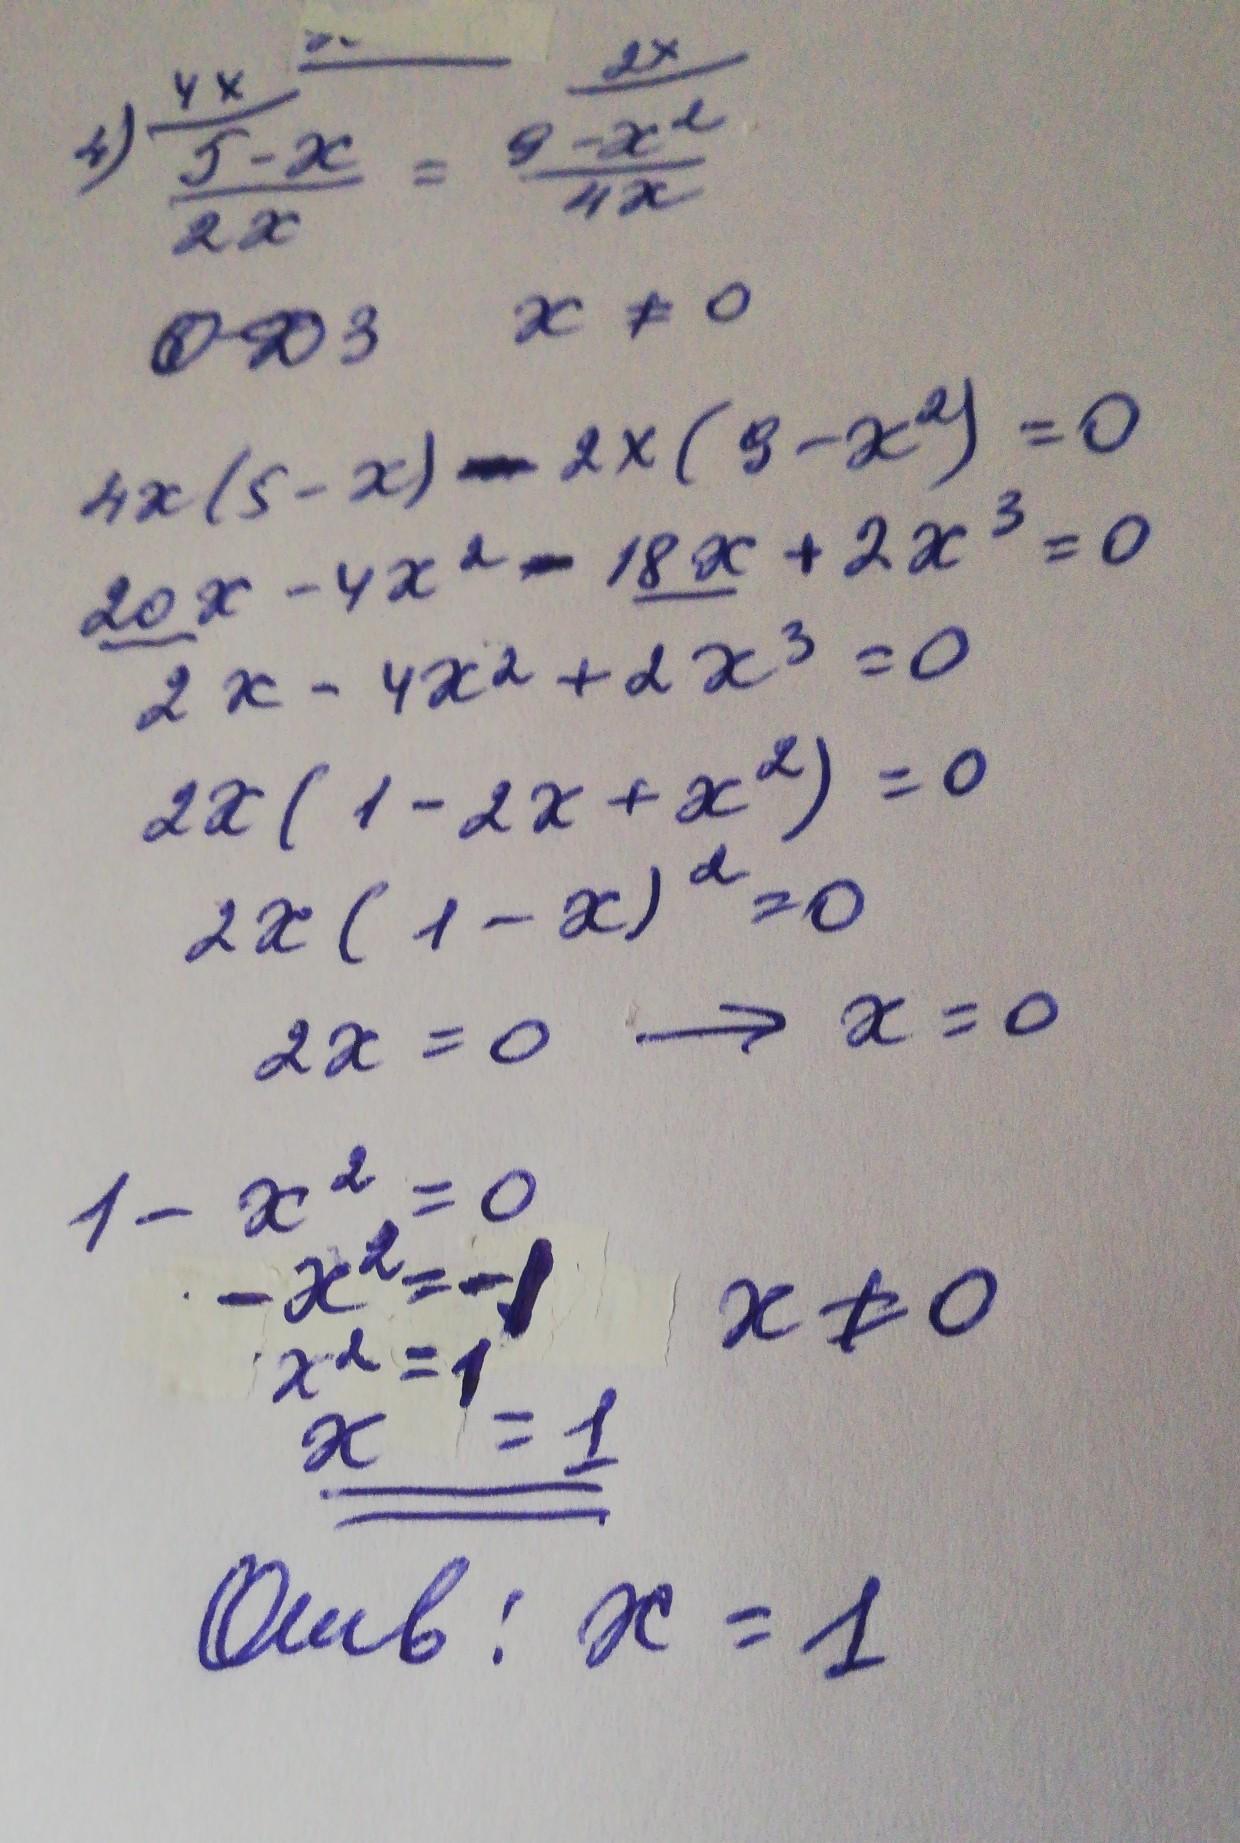 4) 4x/(5-x)/2x = 2x/(9-x²)/4x
ОДЗ x ≠ 0
4x(5-x) - 2x(9-x²) = 0
20x - 4x² - 18x + 2x³ = 0
2x - 4x² + 2x³ = 0
2x(1 - 2x + x²) = 0
2x(1-x)² = 0
2x = 0 → x = 0
1 - x² = 0
-x² = -1 x ≠ 0
x² = 1
x = 1
Отв: x = 1